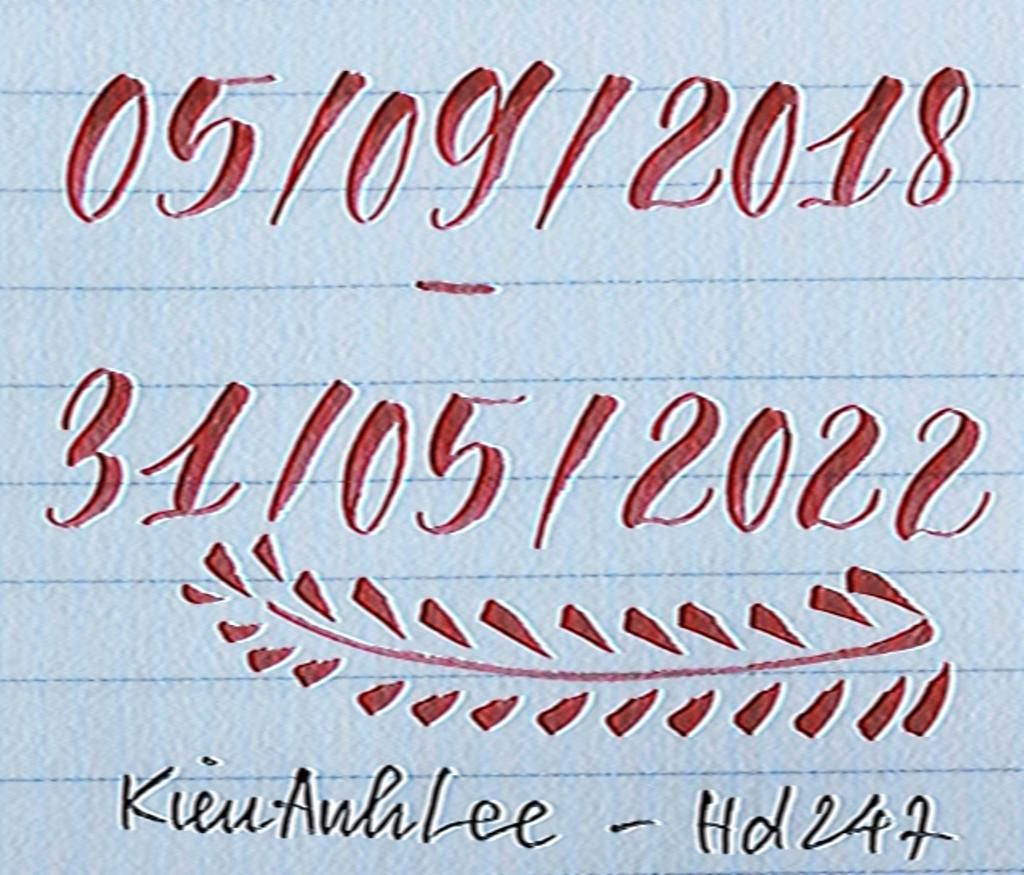 05/09/2018
-
31/05/2022
KiềuAnhLee - Hd247